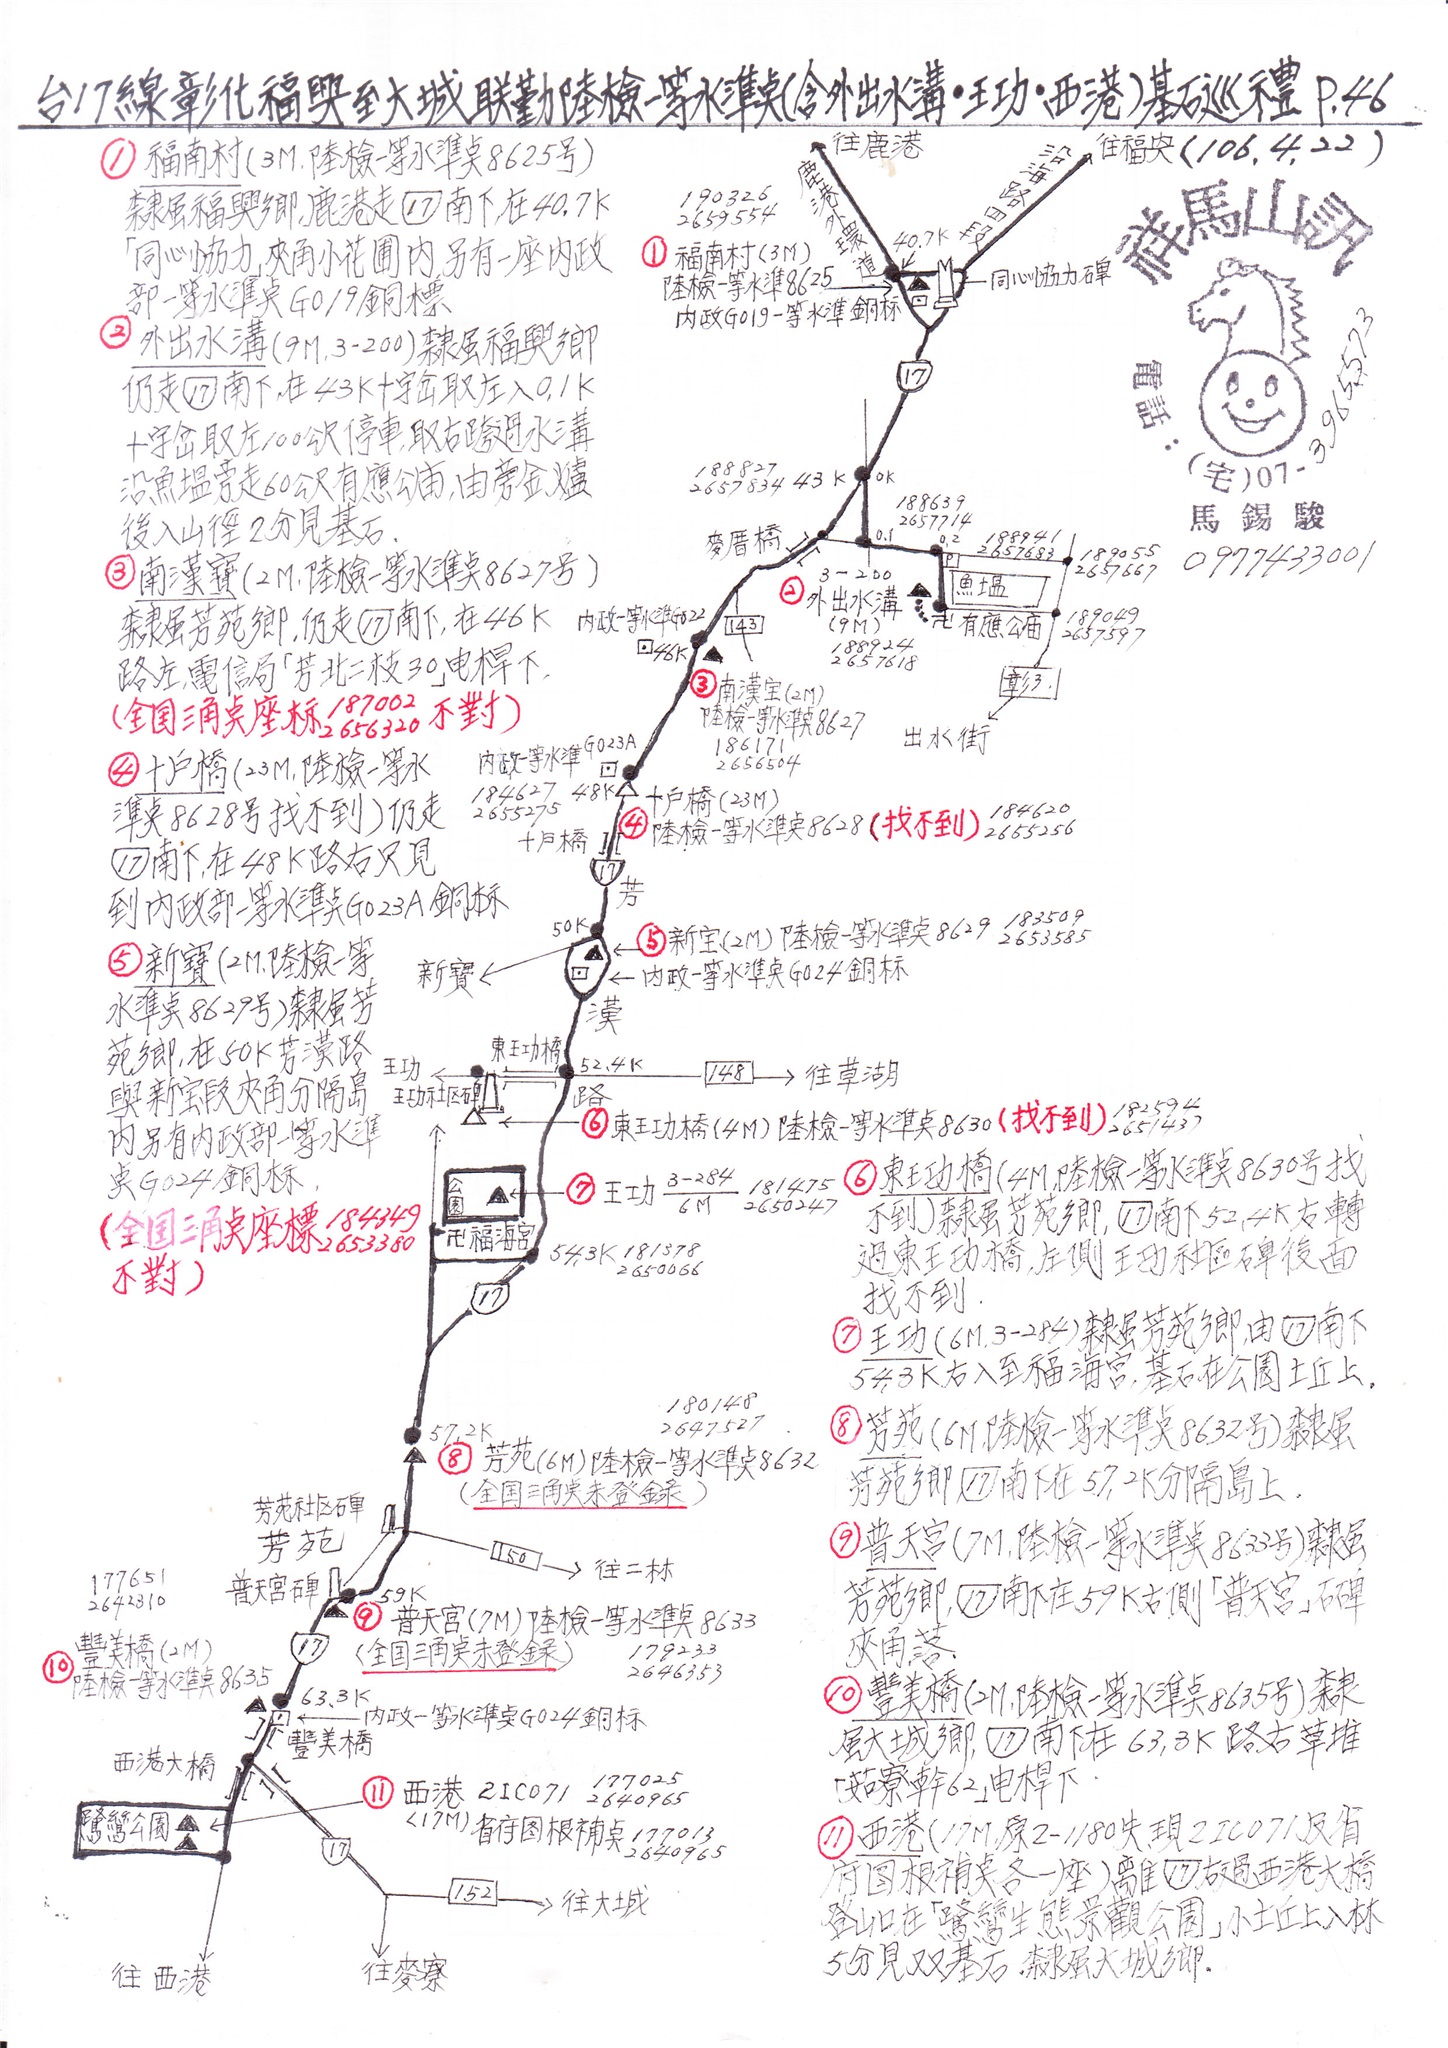 台17線彰化福興至大城联勤陸檢一等水準点(含外出水溝·王功·西港)基石巡禮 P.46
(106.4.22)
① 福南村(3M.陸檢一等水準点8625号)
隸属福興鄉,鹿港走17南下,在40.7K
「同心協力」夾角小花圃内,另有一座内政
部一等水準点G019銅標
② 外出水溝(9M,3-200)隸属福興鄉
仍走17南下,在43K十字岔取左入0.1K
十字岔取左100公尺停車,取右跨过水溝
沿魚塭旁走60公尺有應公庙,由旁金爐
後入山徑2分見基石.
③ 南漢寶(2M,陸檢一等水準点8627号)
隸属芳苑鄉,仍走17南下,在46K
路左,電信局「芳北二枝30」电桿下.
(全国三角点座标187002
2656320不對)
④ 十戶橋(23M,陸檢一等水
準点8628号找不到)仍走
17南下,在48K路右只見
到内政部一等水準点G023A銅标
⑤ 新寶(2M,陸檢一等
水準点8629号)隸属芳
苑鄉,在50K芳漢路
與新宝段夾角分隔島
内另有内政部一等水準
点G024銅标.
(全国三角点座標184349
2653380
不對)
往鹿港
往福央
鹿港外環道
沿海路四段
190326
2659554
40.7K
① 福南村(3M)
陸檢一等水準8625
内政G019一等水準銅标
同心協力碑
17
祥馬山訊
電話:
(宅)07-3965573
馬錫駿
0977433001
188827
2657834
43K
0K
188639
2657714
麥厝橋
0.1
0.2
188941
2657683
P
189055
2657667
魚塭
3-200
② 外出水溝
(9M)
188924
2657618
卍有應公庙
189049
2657597
彰3.
出水街
143
内政一等水準G022
46K
③ 南漢宝(2M)
陸檢一等水準点8627
186171
2656504
内政一等水準G023A
184627
2655275
48K
十戶橋(23M)
④ 陸檢一等水準点8628(找不到)
184620
2655256
十戶橋
17
芳
50K
⑤ 新宝(2M)陸檢一等水準点8629
183509
2653585
内政一等水準点G024銅标
新寶
漢
東王功橋
王功
52.4K
148
往草湖
王功社区碑
路
⑥ 東王功橋(4M)陸檢一等水準点8630(找不到)
182594
2651437
公園
⑦ 王功 3-284
6M
181475
2650247
卍福海宮
54.3K
181378
2650066
17
⑥ 東王功橋(4M,陸檢一等水準点8630号找
不到)隸属芳苑鄉,17南下52.4K右轉
過東王功橋,左側王功社区碑後面
找不到.
⑦ 王功(6M,3-284)隸属芳苑鄉,由17南下
54.3K右入至福海宮,基石在公園土丘上.
⑧ 芳苑(6M,陸檢一等水準点8632号)隸属
芳苑鄉17南下在57.2K分隔島上.
⑨ 普天宮(7M,陸檢一等水準点8633号)隸属
芳苑鄉,17南下在59K右側「普天宮」石碑
夾角落.
⑩ 豐美橋(2M,陸檢一等水準点8635号)隸
属大城鄉,17南下在63.3K路右草堆
「茄寮幹62」电桿下.
⑪ 西港(17M,原2-1180失,現2IC071及省
府図根補点各一座)離17右過西港大橋
登山口在「鷺鷥生態景觀公園」小土丘上入林
5分見双基石.隸属大城鄉.
180148
2647527
57.2K
⑧ 芳苑(6M)陸檢一等水準点8632
(全国三角点未登錄)
芳苑社区碑
芳苑
150
往二林
普天宮碑
59K
⑨ 普天宮(7M)陸檢一等水準点8633
(全国三角点未登錄)
179233
2646353
177651
2642310
⑩ 豐美橋(2M)
陸檢一等水準点8635
17
63.3K
内政一等水準点G024銅标
豐美橋
西港大橋
⑪ 西港 2IC071
177025
2640965
(17M)
省府図根補点
177013
2640965
鷺鷥公園
17
152
往大城
往西港
往麥寮